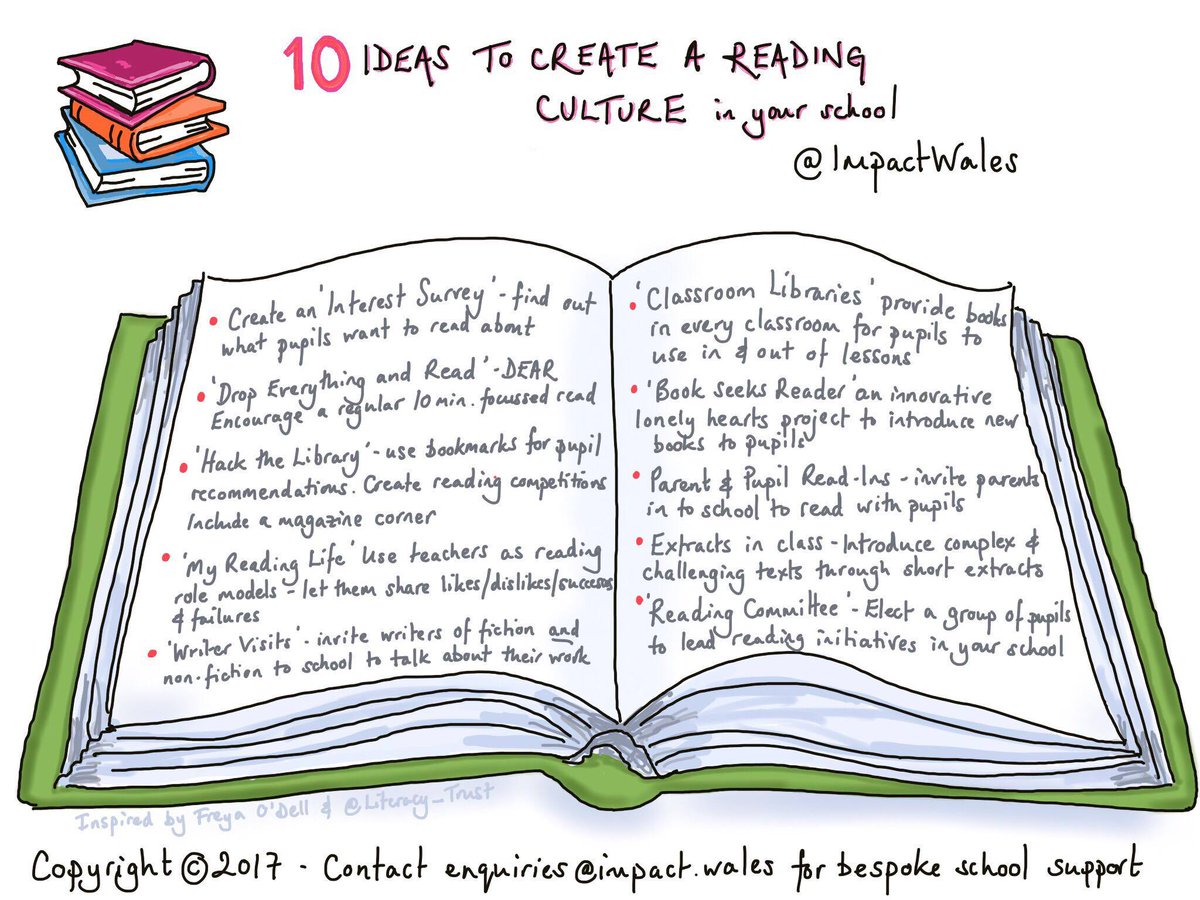 10 IDEAS TO CREATE A READING
CULTURE in your school
@ImpactWales
• Create an 'Interest Survey' - find out
what pupils want to read about
• 'Drop Everything and Read' - DEAR
Encourage a regular 10 min. focussed read
• 'Hack the Library' - use bookmarks for pupil
recommendations. Create reading competitions
Include a magazine corner
• 'My Reading Life' Use teachers as reading
role models - let them share likes/dislikes/success
& failures
• 'Writer Visits' - invite writers of fiction and
non-fiction to school to talk about their work
• 'Classroom Libraries' provide books
in every classroom for pupils to
use in & out of lessons
• 'Book Seeks Reader' an innovative
lonely hearts project to introduce new
books to pupils
• Parent & Pupil Read-Ins - invite parents
in to school to read with pupils
• Extracts in class - Introduce complex &
challenging texts through short extracts
• 'Reading Committee' - Elect a group of pupils
to lead reading initiatives in your school
Inspired by Freya O'Dell & @Literacy_Trust
Copyright ©2017 - Contact enquiries@impact.wales for bespoke school support